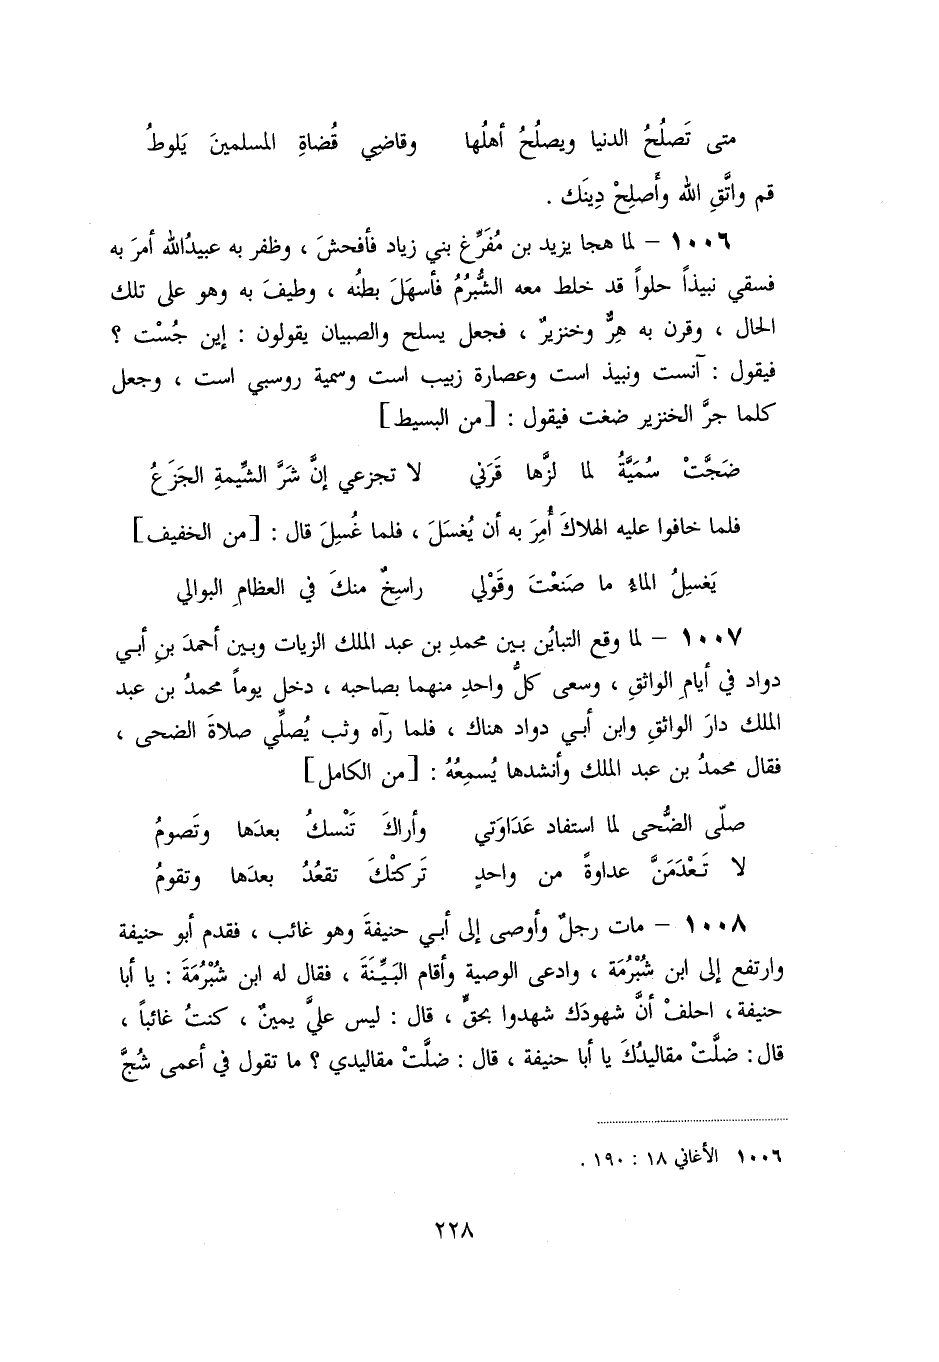 متى تَصلُحُ الدنيا ويصلُحُ أهلُها وقاضِي قُضاةِ المسلمينَ يَلوطُ
قم واتَّقِ الله وأَصلِحْ دِينَك .
١٠٠٦ – لما هجا يزيد بن مُفَرِّغ بني زياد فأفحشَ ، وظفر به عبيدُالله أمرَ به
فسقي نبيذاً حلواً قد خلط معه الشُّبرُمُ فأسهَلَ بطنُه ، وطيفَ به وهو على تلك
الحال ، وقرن به هِرٌّ وخنزيرٌ ، فجعل يسلح والصبيان يقولون : إين جُسْت ؟
فيقول : آنست ونبيذ است وعصارة زبيب است وسمية روسبي است ، وجعل
كلما جرَّ الخنزير ضغت فيقول : [من البسيط]
ضَجَّتْ سُمَيَّةُ لما لزَّها قَرَني لا تجزعي إنَّ شَرَّ الشِّيمةِ الجَزَعُ
فلما خافوا عليه الهلاكَ أُمِرَ به أن يُغسَلَ ، فلما غُسِلَ قال : [من الخفيف]
يَغسِلُ الماءُ ما صَنَعْتَ وقَوْلي راسِخٌ منكَ في العظامِ البوالي
١٠٠٧ – لما وقع التبايُن بين محمدِ بن عبد الملك الزيات وبين أحمدَ بنِ أبي
دواد في أيامِ الواثقِ ، وسعى كلُّ واحدٍ منهما بصاحبه ، دخل يوماً محمدُ بن عبد
الملك دارَ الواثقِ وابن أبي دواد هناك ، فلما رآه وثب يُصلِّي صلاةَ الضحى ،
فقال محمدُ بن عبد الملك وأنشدها يُسمِعُهُ : [من الكامل]
صلّى الضُّحى لما استفاد عَدَاوَتي وأراكَ تَنْسكُ بعدَها وتَصومُ
لا تَعْدَمَنَّ عداوةً من واحدٍ تَركتْكَ تقعُدُ بعدَها وتقومُ
١٠٠٨ – مات رجلٌ وأوصى إلى أبي حنيفةَ وهو غائب ، فقدم أبو حنيفة
وارتفع إلى ابن شُبْرُمَة ، وادعى الوصية وأقام البَيِّنَةَ ، فقال له ابن شُبْرُمَةَ : يا أبا
حنيفة ، احلفْ أنَّ شهودَك شهدوا بحقٍّ ، قال : ليس عليَّ يمينٌ ، كنتُ غائباً ،
قال : ضلَّتْ مقاليدُكَ يا أبا حنيفة ، قال : ضلَّتْ مقاليدي ؟ ما تقول في أعمى شُجَّ
١٠٠٦ الأغاني ١٨ : ١٩٠ .
٢٢٨